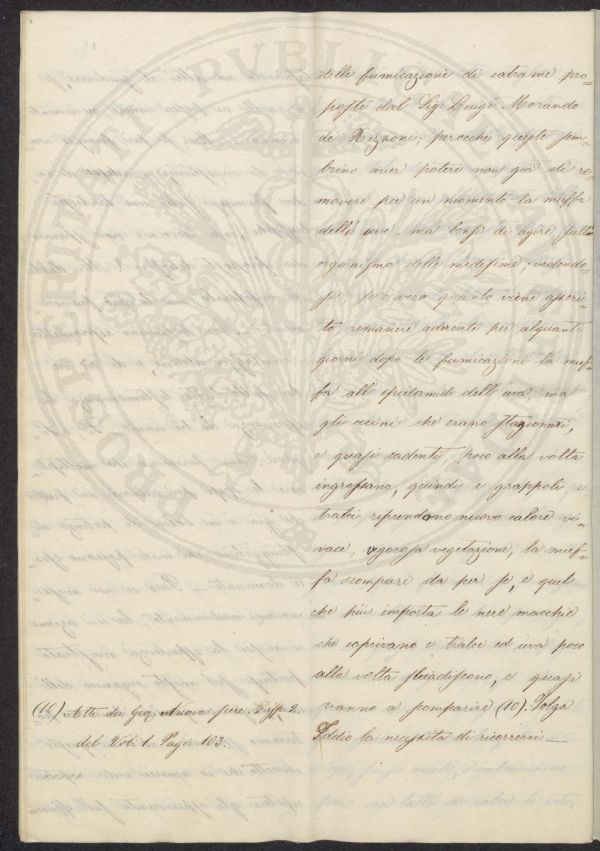 delle fumicazioni di catrame pro-
poste dal Sig. Luigi Morando
de Rizzoni; perocchè queste sem-
brino aver potere non già di re-
movere per un momento la muffa
delle uve, ma bensì di agire sull'
organismo delle medesime; vedendo-
si, se è vero quanto viene asseri-
to, rimanere aderente per alquanti
giorni dopo le fumicazioni la muf-
fa all' epidamide dell' uva, ma
gli acini che erano stazionari,
e quasi cadenti poco alla volta
ingrossano, quindi e grappoli e
tralci riprendono nuovo calore vi-
vace, vigorosa vegetazione, la muf-
fa scompare da per se, e quel
che più importa le nere macchie
che coprivano e tralci ed uva poco
alla volta sbiadiscono, e quasi
vanno a scomparire (10). Tolga
Iddio la necessità di ricorrere
(10) Atti dei Geo. Nuova serie. Disp. 2.
del Vol. 1. Pag. 103.
PROSPERITATI PVBLI